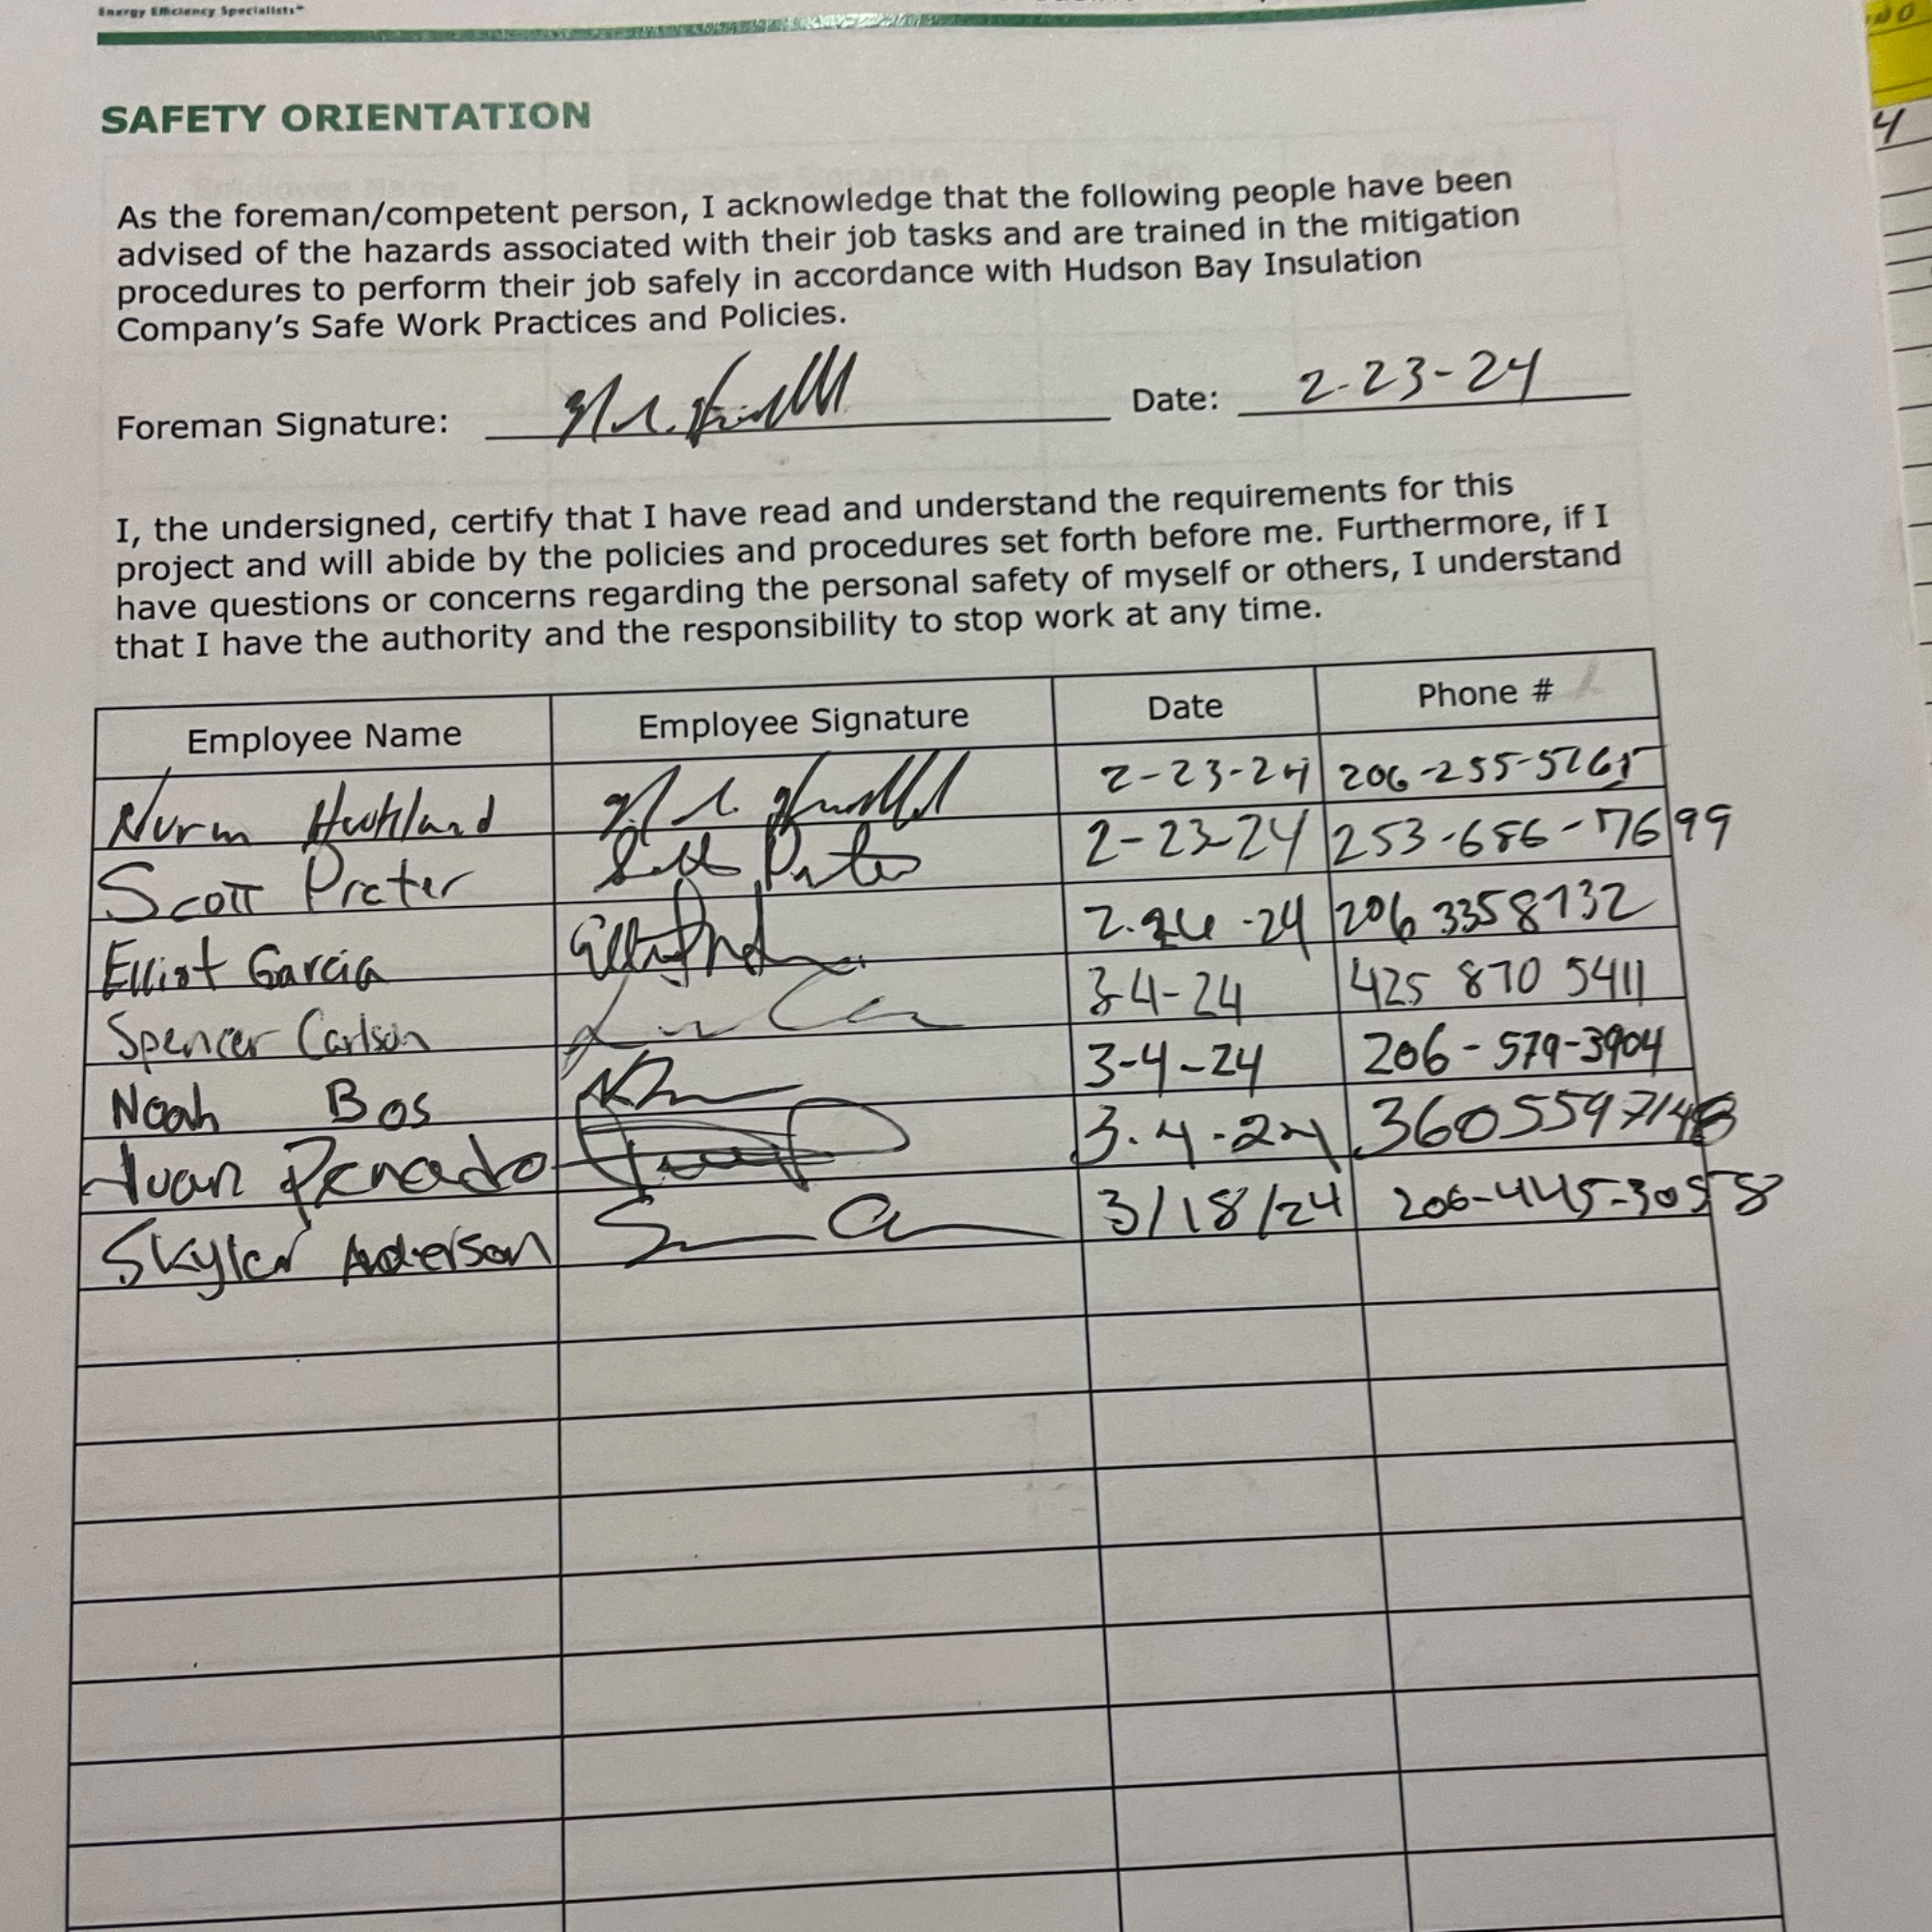 Energy Efficiency Specialists
SAFETY ORIENTATION
As the foreman/competent person, I acknowledge that the following people have been
advised of the hazards associated with their job tasks and are trained in the mitigation
procedures to perform their job safely in accordance with Hudson Bay Insulation
Company's Safe Work Practices and Policies.
Foreman Signature: Date: 2-23-24
I, the undersigned, certify that I have read and understand the requirements for this
project and will abide by the policies and procedures set forth before me. Furthermore, if I
have questions or concerns regarding the personal safety of myself or others, I understand
that I have the authority and the responsibility to stop work at any time.
Employee Name Employee Signature Date Phone #
Norm 2-23-24
Scott Prater Scott Prater 2-23-24 253-686-7699
Elliot Garcia 206 3358732
Spencer Carlson 3-4-24 425 870 5411
Noah Bos 3-4-24 206-579-3904
Juan Penado 3.4.24
Skyler Anderson 3/18/24 206-445-3058
4